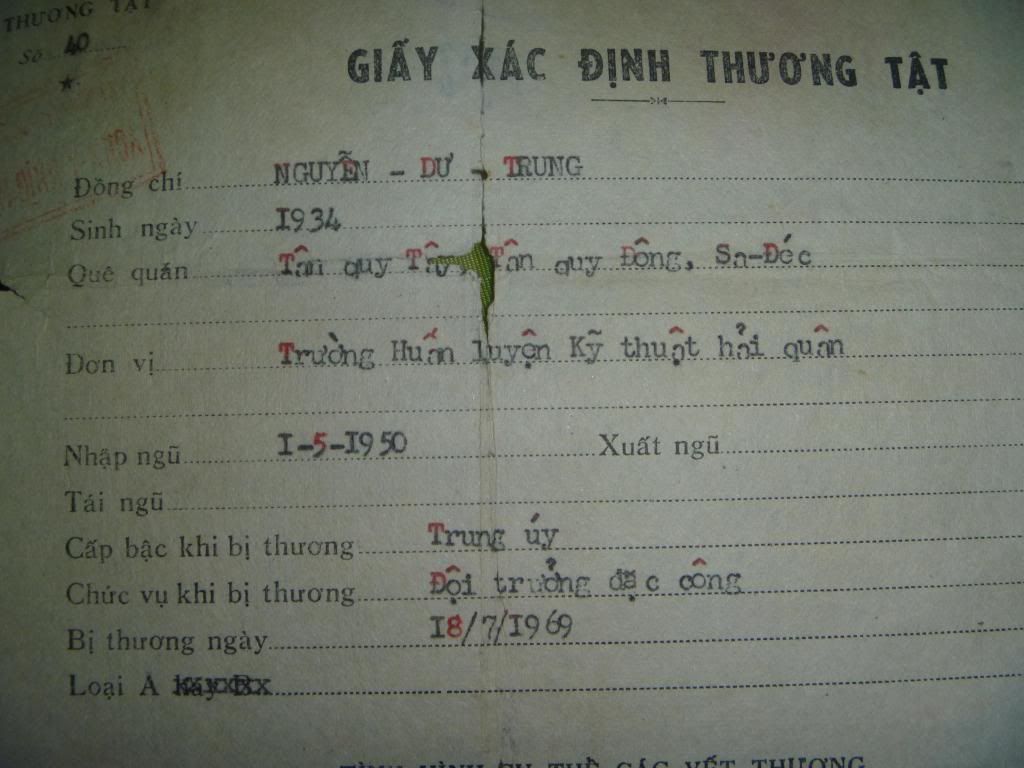 THƯƠNG TẬT
Số 40
GIẤY XÁC ĐỊNH THƯƠNG TẬT
Đồng chí NGUYỄN - DƯ - TRUNG
Sinh ngày 1934
Quê quán Tân quy Tây, Tân quy Đông, Sa-Đéc
Đơn vị Trường Huấn luyện Kỹ thuật hải quân
Nhập ngũ I-5-I950 Xuất ngũ
Tái ngũ
Cấp bậc khi bị thương Trung úy
Chức vụ khi bị thương Đội trưởng đặc công
Bị thương ngày I8/7/I969
Loại A
CÁC VẾT THƯƠNG